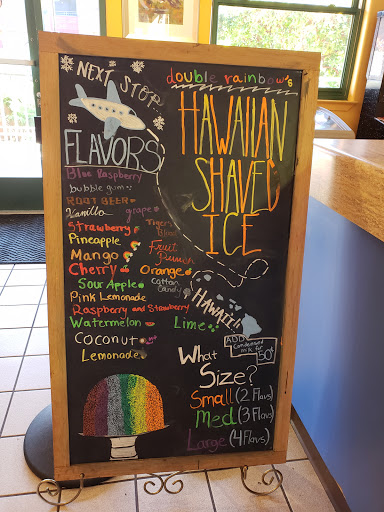 NEXT STOP
FLAVORS
Blue Raspberry
bubble gum
ROOT BEER
Vanilla
grape
Strawberry
Tigers Blood
Pineapple
Fruit Punch
Mango
Cherry
Orange
Sour Apple
Cotton Candy
Pink Lemonade
Raspberry and Strawberry
Watermelon
Lime
Coconut
Lemonade
double rainbow's
HAWAIIAN
SHAVED
ICE
HAWAII!!
ADD
Condensed
milk for
50¢
What
Size?
Small (2 Flavs)
Med (3 Flavs)
Large (4 Flavs)